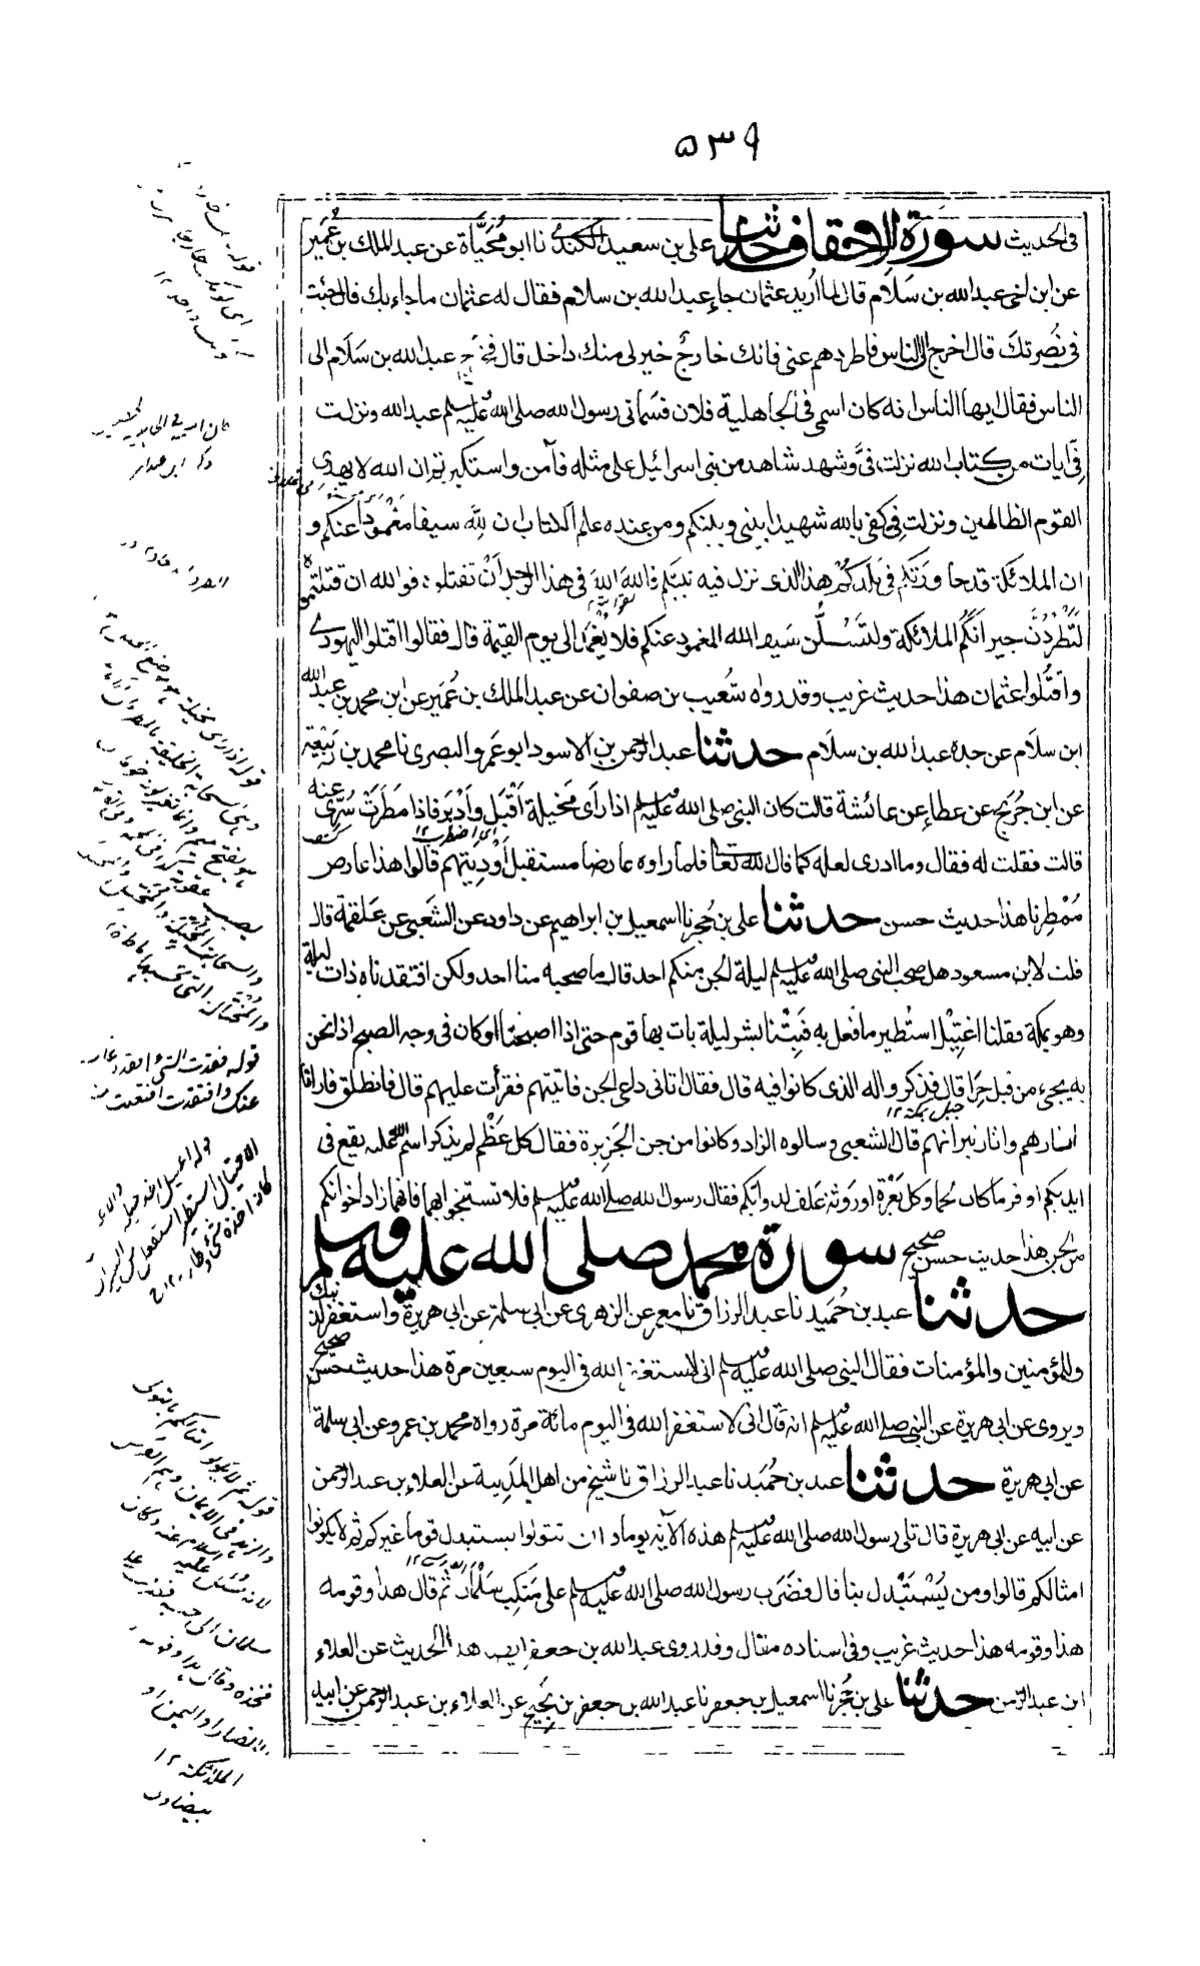 ٥٣٩
فى الحديث سورة الاحقاف حدثنا على بن سعيد الكندى نا ابو محياة عن عبد الملك بن عمير
عن ابن اخى عبد الله بن سلام قال لما اريد عثمان جاء عبد الله بن سلام فقال له عثمان ما جاء بك قال جئت
فى نصرتك قال اخرج الى الناس فاطردهم عنى فانك خارج خير لى منك داخل قال فخرج عبد الله بن سلام الى
الناس فقال ايها الناس انه كان اسمى فى الجاهلية فلان فسمانى رسول الله صلى الله عليه وسلم عبد الله ونزلت
فى ايات من كتاب الله نزلت فى وشهد شاهد من بنى اسرائيل على مثله فآمن واستكبرتم ان الله لا يهدى
القوم الظالمين ونزلت فى كفى بالله شهيدا بينى وبينكم ومن عنده علم الكتاب ان لله سيفا مغمودا عنكم و
ان الملائكة قد جاورتكم فى بلدكم هذا الذى نزل فيه نبيكم فالله الله فى هذا الرجل ان تقتلوه فوالله ان قتلتموه
لتطردن جيرانكم الملائكة ولتسلن سيف الله المغمود عنكم فلا يغمد الى يوم القيمة قال فقالوا اقتلوا اليهودى
واقتلوا عثمان هذا حديث غريب وقد رواه شعيب بن صفوان عن عبد الملك بن عمير عن ابن محمد بن عبد الله
ابن سلام عن جده عبد الله بن سلام حدثنا عبد الرحمن بن الاسود ابو عمرو البصرى نا محمد بن ربيعة
عن ابن جريج عن عطاء عن عائشة قالت كان النبى صلى الله عليه وسلم اذا راى مخيلة اقبل وادبر فاذا مطرت سرى عنه
قالت فقلت له فقال وما ادرى لعله كما قال الله تعالى فلما راوه عارضا مستقبل اوديتهم قالوا هذا عارض
ممطرنا هذا حديث حسن حدثنا على بن حجر نا اسمعيل بن ابراهيم عن داود عن الشعبى عن علقمة قال
قلت لابن مسعود هل صحب النبى صلى الله عليه وسلم ليلة الجن منكم احد قال ما صحبه منا احد ولكن افتقدناه ذات ليلة
وهو بمكة فقلنا اغتيل استطير ما فعل به فبتنا بشر ليلة بات بها قوم حتى اذا اصبحنا او كان فى وجه الصبح اذا نحن
به يجىء من قبل حرا قال فذكروا له الذى كانوا فيه قال فقال اتانى داعى الجن فاتيتهم فقرأت عليهم قال فانطلق فارانا
اثارهم واثار نيرانهم قال الشعبى وسالوه الزاد وكانوا من جن الجزيرة فقال كل عظم لم يذكر اسم الله عليه يقع فى
ايديكم اوفر ما كان لحما وكل بعرة او روثة علف لدوابكم فقال رسول الله صلى الله عليه وسلم فلا تستنجوا بهما فانهما زاد اخوانكم
من الجن هذا حديث حسن صحيح سورة محمد صلى الله عليه وسلم
حدثنا عبد بن حميد نا عبد الرزاق نا معمر عن الزهرى عن ابى سلمة عن ابى هريرة واستغفر لذنبك
وللمؤمنين والمؤمنات فقال النبى صلى الله عليه وسلم انى لاستغفر الله فى اليوم سبعين مرة هذا حديث حسن صحيح
ويروى عن ابى هريرة عن النبى صلى الله عليه وسلم انه قال انى لاستغفر الله فى اليوم مائة مرة رواه محمد بن عمرو عن ابى سلمة
عن ابى هريرة حدثنا عبد بن حميد نا عبد الرزاق نا شيخ من اهل المدينة عن العلاء بن عبد الرحمن
عن ابيه عن ابى هريرة قال تلى رسول الله صلى الله عليه وسلم هذه الآية يوما وان تتولوا يستبدل قوما غيركم ثم لا يكونوا
امثالكم قالوا ومن يستبدل بنا قال فضرب رسول الله صلى الله عليه وسلم على منكب سلمان ثم قال هذا وقومه
هذا وقومه هذا حديث غريب وفى اسناده مقال وقد روى عبد الله بن جعفر ايضا هذا الحديث عن العلاء
ابن عبد الرحمن حدثنا على بن حجر نا اسمعيل بن جعفر نا عبد الله بن جعفر بن نجيح عن العلاء بن عبد الرحمن عن ابيه
جبل بمكة ١٢
قوله فقدت الشىء افقده
عنك وافتقدت افتعلت من
الملائكة ١٢
بيضاوى